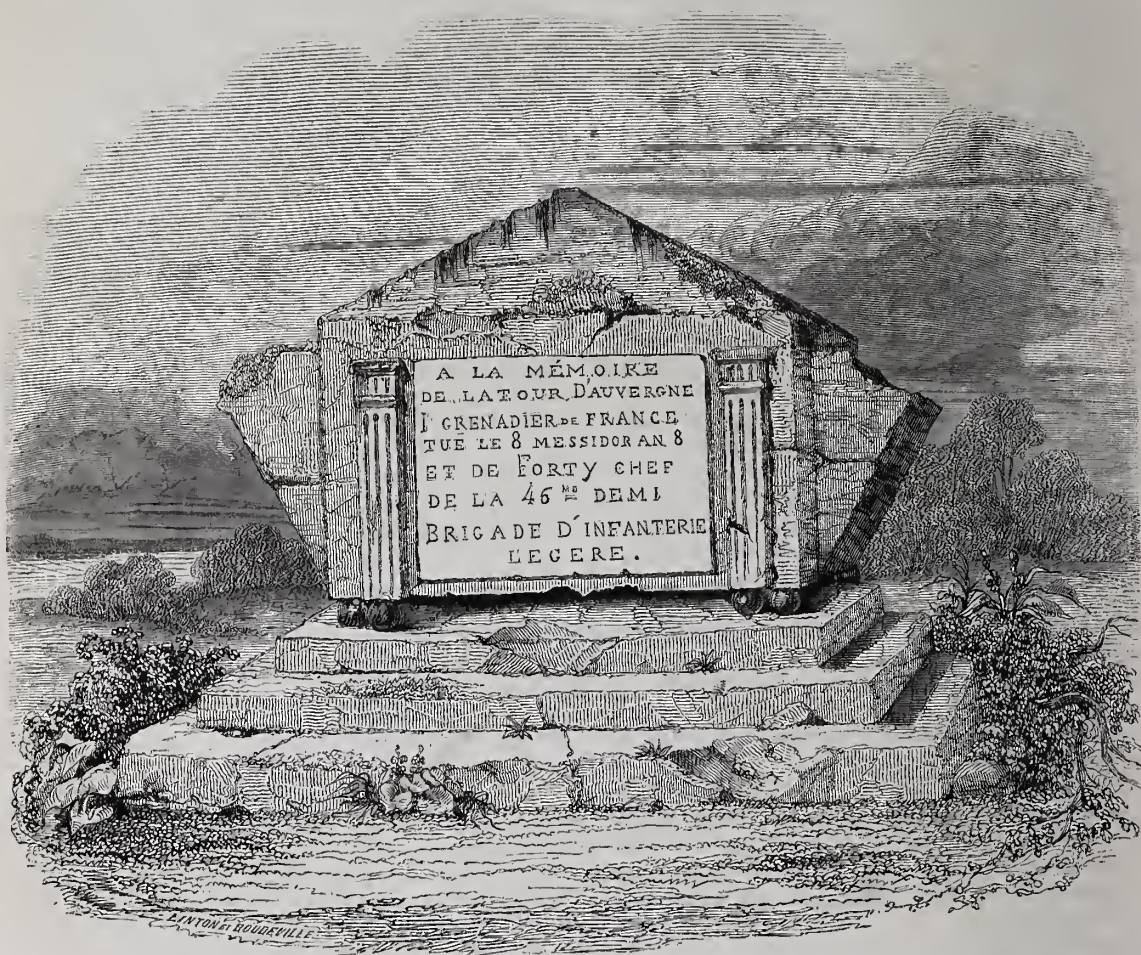 A LA MÉMOIRE
DE LATOUR D'AUVERGNE
1r GRENADIER DE FRANCE
TUÉ LE 8 MESSIDOR AN 8
ET DE FORTY CHEF
DE LA 46 ME DEMI
BRIGADE D'INFANTERIE
LEGERE.
LINTON ET BOUDEVILLE